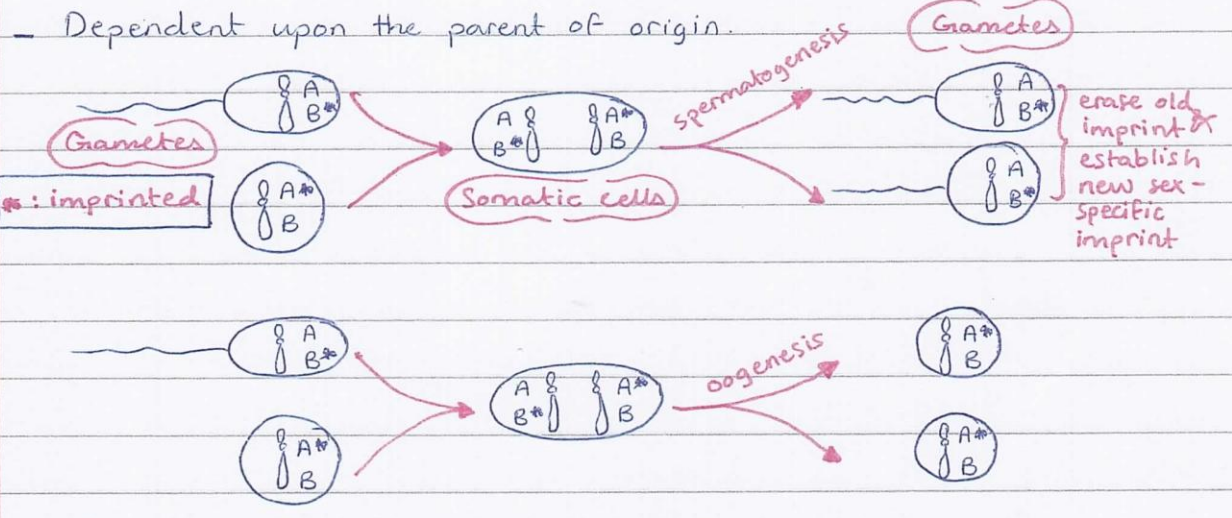 – Dependent upon the parent of origin.
Gametes
A
B*
Gametes
*: imprinted
A*
B
A
B*
A*
B
Somatic cells
spermatogenesis
A
B*
A
B*
erase old
imprint &
establish
new sex-
specific
imprint
A
B*
A*
B
A
B*
A*
B
oogenesis
A*
B
A*
B